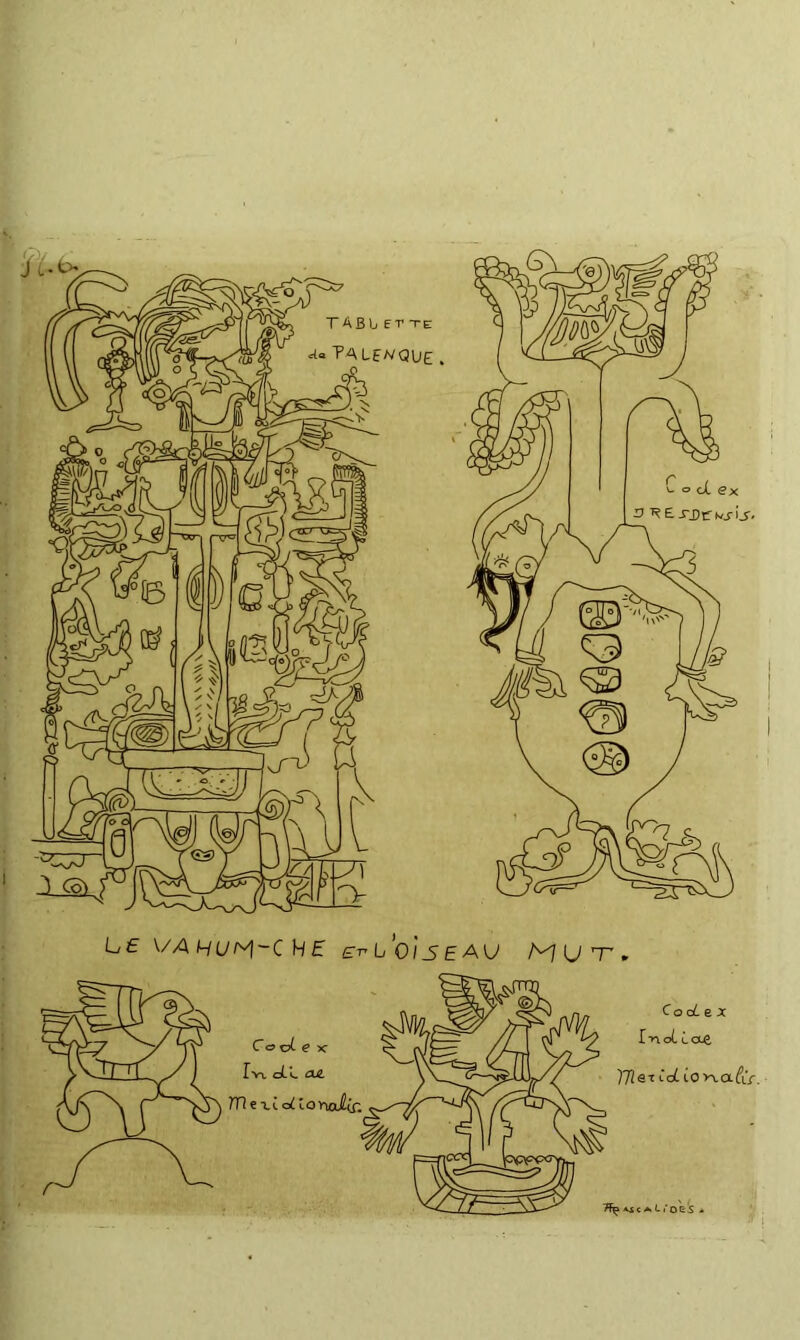 TABLETTE
de PALENQUE.
Codex
DRESDENSIS.
LE VAHUM-CHE ET L'OISEAU MUT.
Codex
Indiae
Meridionalis.
Codex
Indiae
Meridionalis.